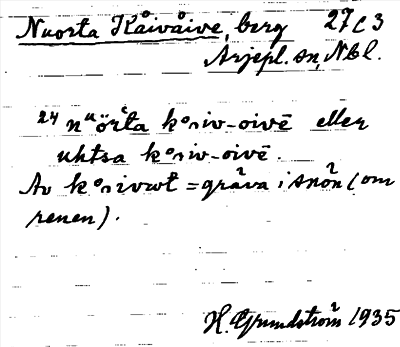 Nuorta Kåivåive, berg 27C3
Arjepl. sn, Nbl.
24 nᵘörͨta kᵒriv-oivē eller
uhtsa kᵒriv-oivē.
Av kᵒrivvt = gräva i snön (om
renen).
H. Grundström 1935